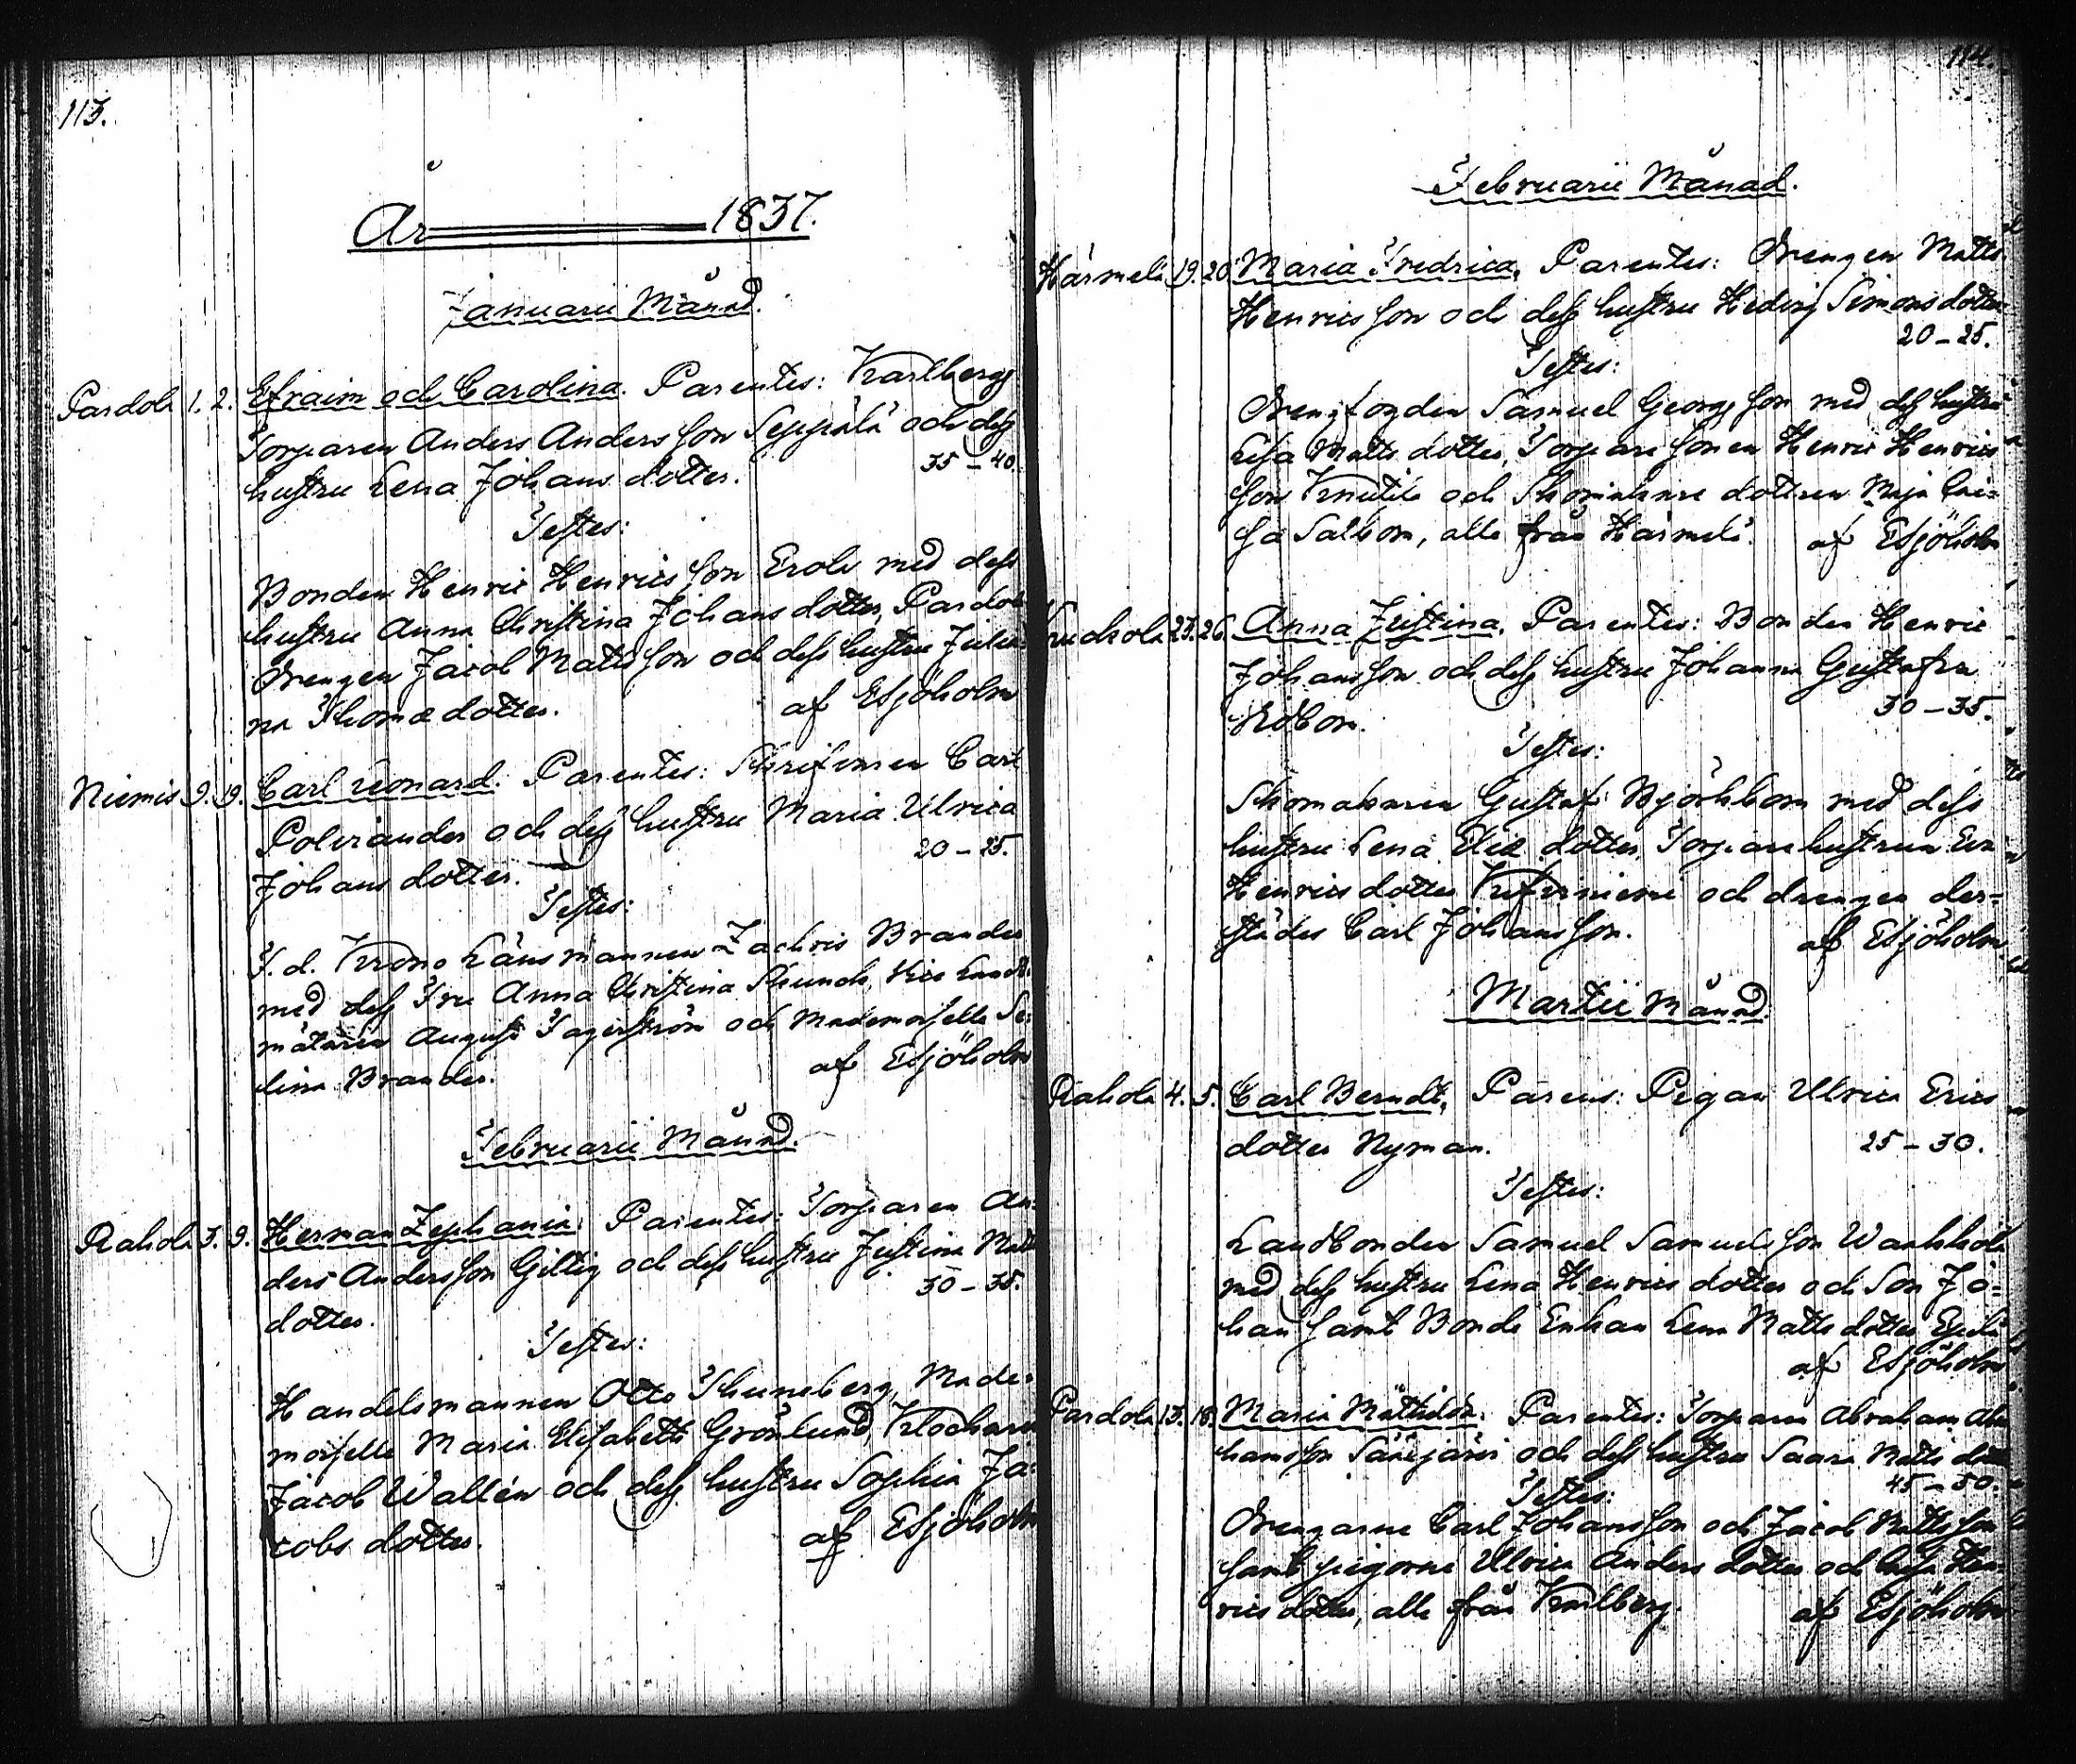 113.
År 1837.
Januarii Månad.
Pardola 1. 2. Efraim och Carolina. Parentes: Karlberg
Torparen Anders Andersson Seppälä och dess
hustru Lena Johans dotter. 35-40.
Testes:
Bonden Henric Henricsson Erola med dess
hustru Anna Christina Johans dotter, Pardola
Drengen Jacob Mattsson och dess hustru Julia
na Thomæ dotter. af ESjöholm
Niemis 9. 19. Carl Leonard. Parentes: Skrifvaren Carl
Polviander och dess hustru Maria Ulrica
Johans dotter. 20-25.
Testes:
T.d. Krono Länsmannen Zachris Brander
med dess Fru Anna Christina Skunck, Vice Landt
mätaren August Fagerström och Mademoiselle Se
lina Brander. af ESjöholm
Februarii Månad.
Rahola 3. 9. Herman Zephania. Parentes: Torparen An
ders Andersson Gillig och dess hustru Justina Matts
dotter. 30-35.
Testes:
Handelsmannen Otto Thuneberg, Made-
moiselle Maria Elisabeth Grönlund, Klockaren
Jacob Wallén och dess hustru Sophia Ja-
cobs dotter. af ESjöholm
114.
Februarii Månad.
Härmelä 19. 20. Maria Fredrica, Parentes: Drengen Matts
Henricsson och dess hustru Hedvig Simons dotter
20-25.
Testes:
Drengfogden Samuel Georgsson med dess hustru
Lisa Matts dotter, Torparesonen Henric Henrics
son Knutila och Skomakare dottren Maja Cai-
sa Salbom, alla från Härmelä. af ESjöholm
23. 26. Anna Justina, Parentes: Bonden Henric
Johansson och dess hustru Johanna Gustafva
Robom. 30-35.
Testes:
Skomakaren Gustaf Björkbom med dess
hustru Lena Eliæ dotter, Torparehustrun Eva
Henrics dotter och drengen der-
städes Carl Johansson. af ESjöholm
Martii Månad.
Rahola 4. 5. Carl Berndt, Parens: Pigan Ulrica Erics
dotter Nyman. 25-30.
Testes:
Landbonden Samuel Samuelsson
med dess hustru Lena Henrics dotter och Son Jo-
han samt Bonde Enkan Lena Matts dotter
af ESjöholm
Pardola 13. 18. Maria Mathilda. Parentes: Torparen Abraham Abra
hamsson Säräjärvi och dess hustru Saara Matts dotter
45-50.
Testes:
Drengarne Carl Johansson och Jacob Mattsson
samt pigorne Ulrica Anders dotter och Caisa Hen
rics dotter, alla från Karlberg. af ESjöholm